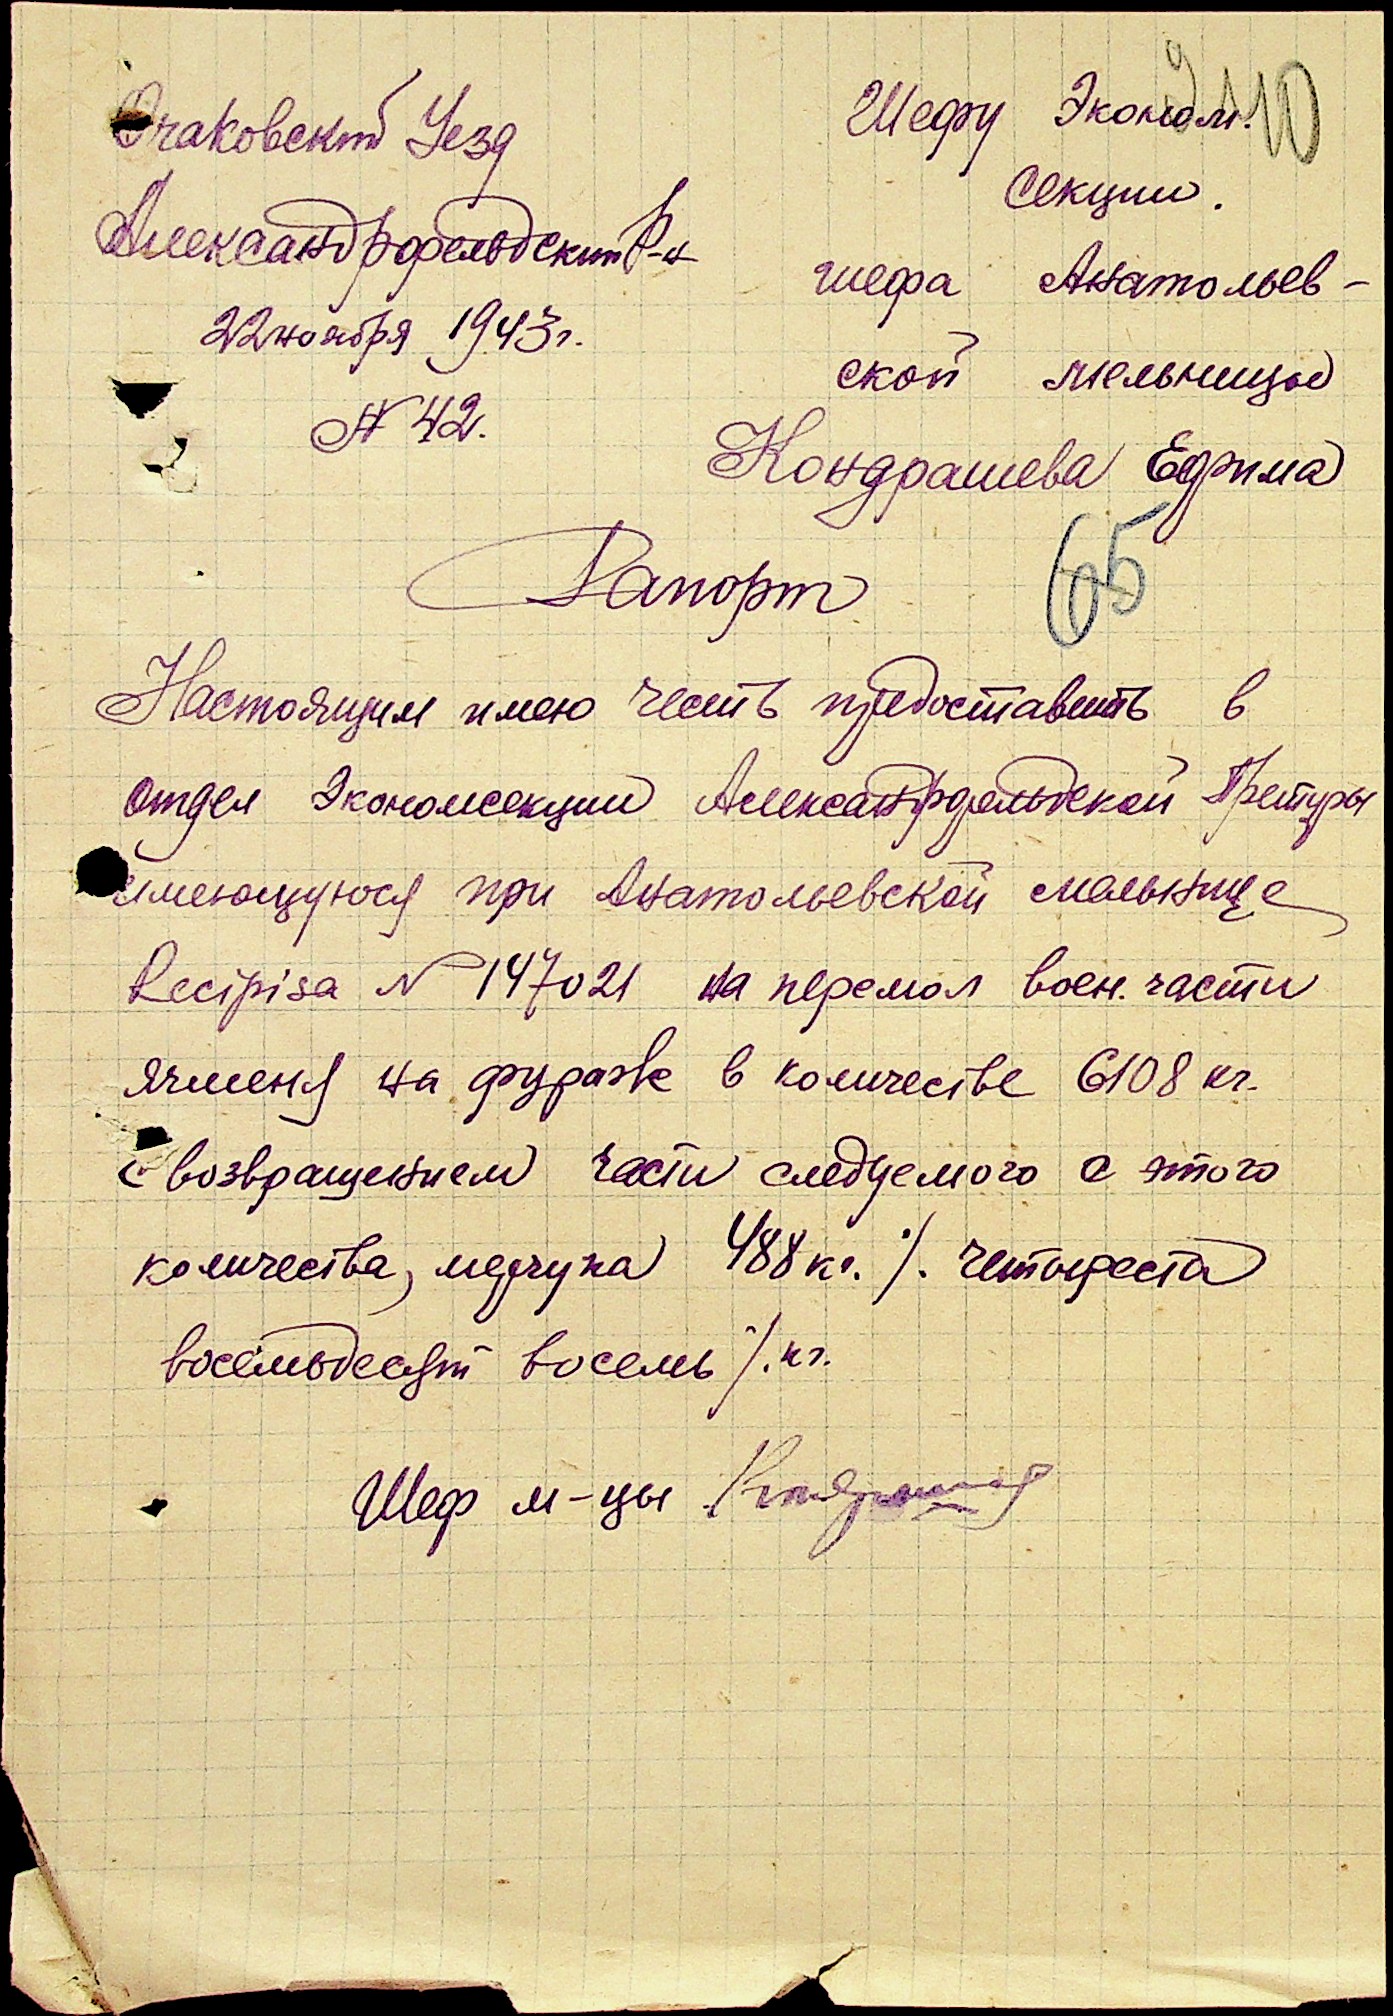 Очаковский Уезд
Александрфельдский Р-н
22 ноября 1943 г.
№ 42.
Шефу Эконом.
секции.
шефа Анатольев-
ской мельницы
Кондрашева Ефима
65
Рапорт
Настоящим имею честь предоставить в
отдел Экономсекции Александрфельдской Претуры
имеющуюся при Анатольевской мельнице
Recipisa № 147021 на перемол воен. части
ячменя на фураж в количестве 6108 кг.
с возвращением части следуемого с этого
количества, мерчука 488 кг. /. четыреста
восемьдесят восемь /. кг.
Шеф м-цы